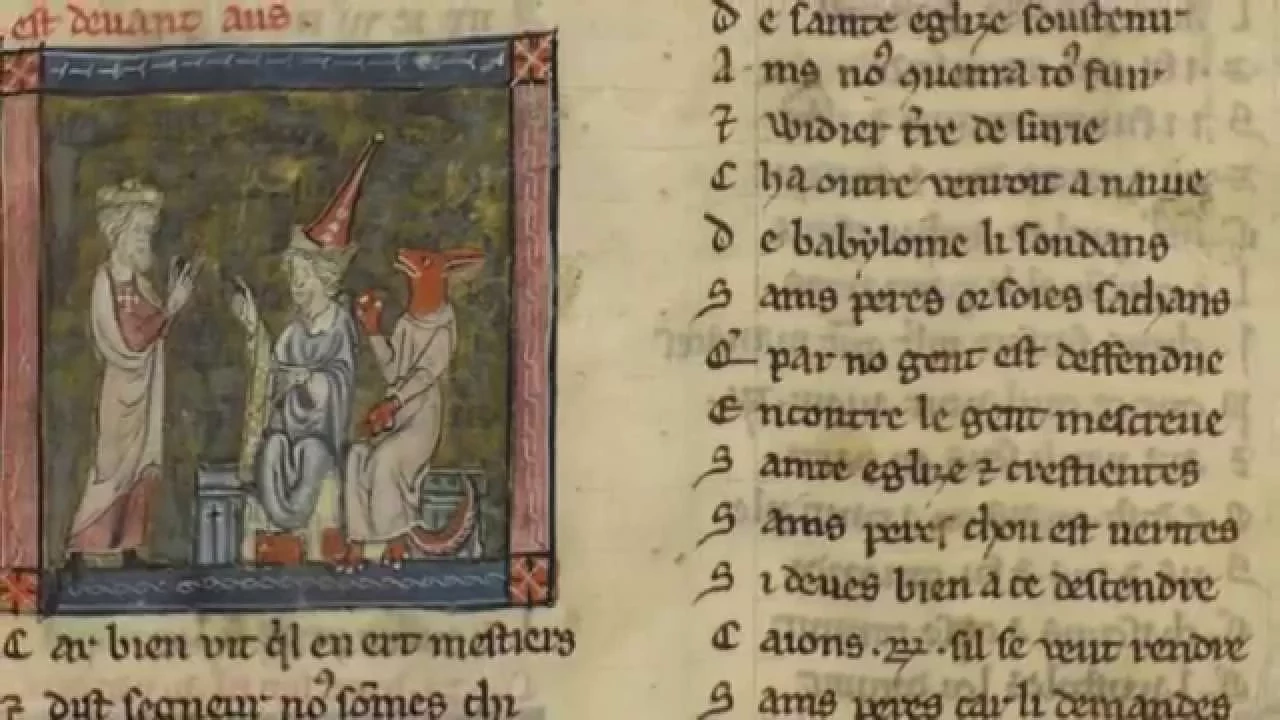 est deuant aus .
C ar bien vit q̄l en ert mestiers
⁊ dist segneur noꝰ sōmes chi
D e sainte eglize soustenir
A ins noꝰ ꝯuenra toꝰ fuir
⁊ widier t̄re de surie
C ha outre venroit a nauie
D e babyloine li soudans
S ains peres or soies sachans
Q̄ par no gent est deffendue
E ncontre le gent mescreue
S ainte eglize ⁊ crestientes
S ains peres chou est uerites
S i deues bien a ce descendre
C aions sil se veut rendre
S ains peres car li demandes